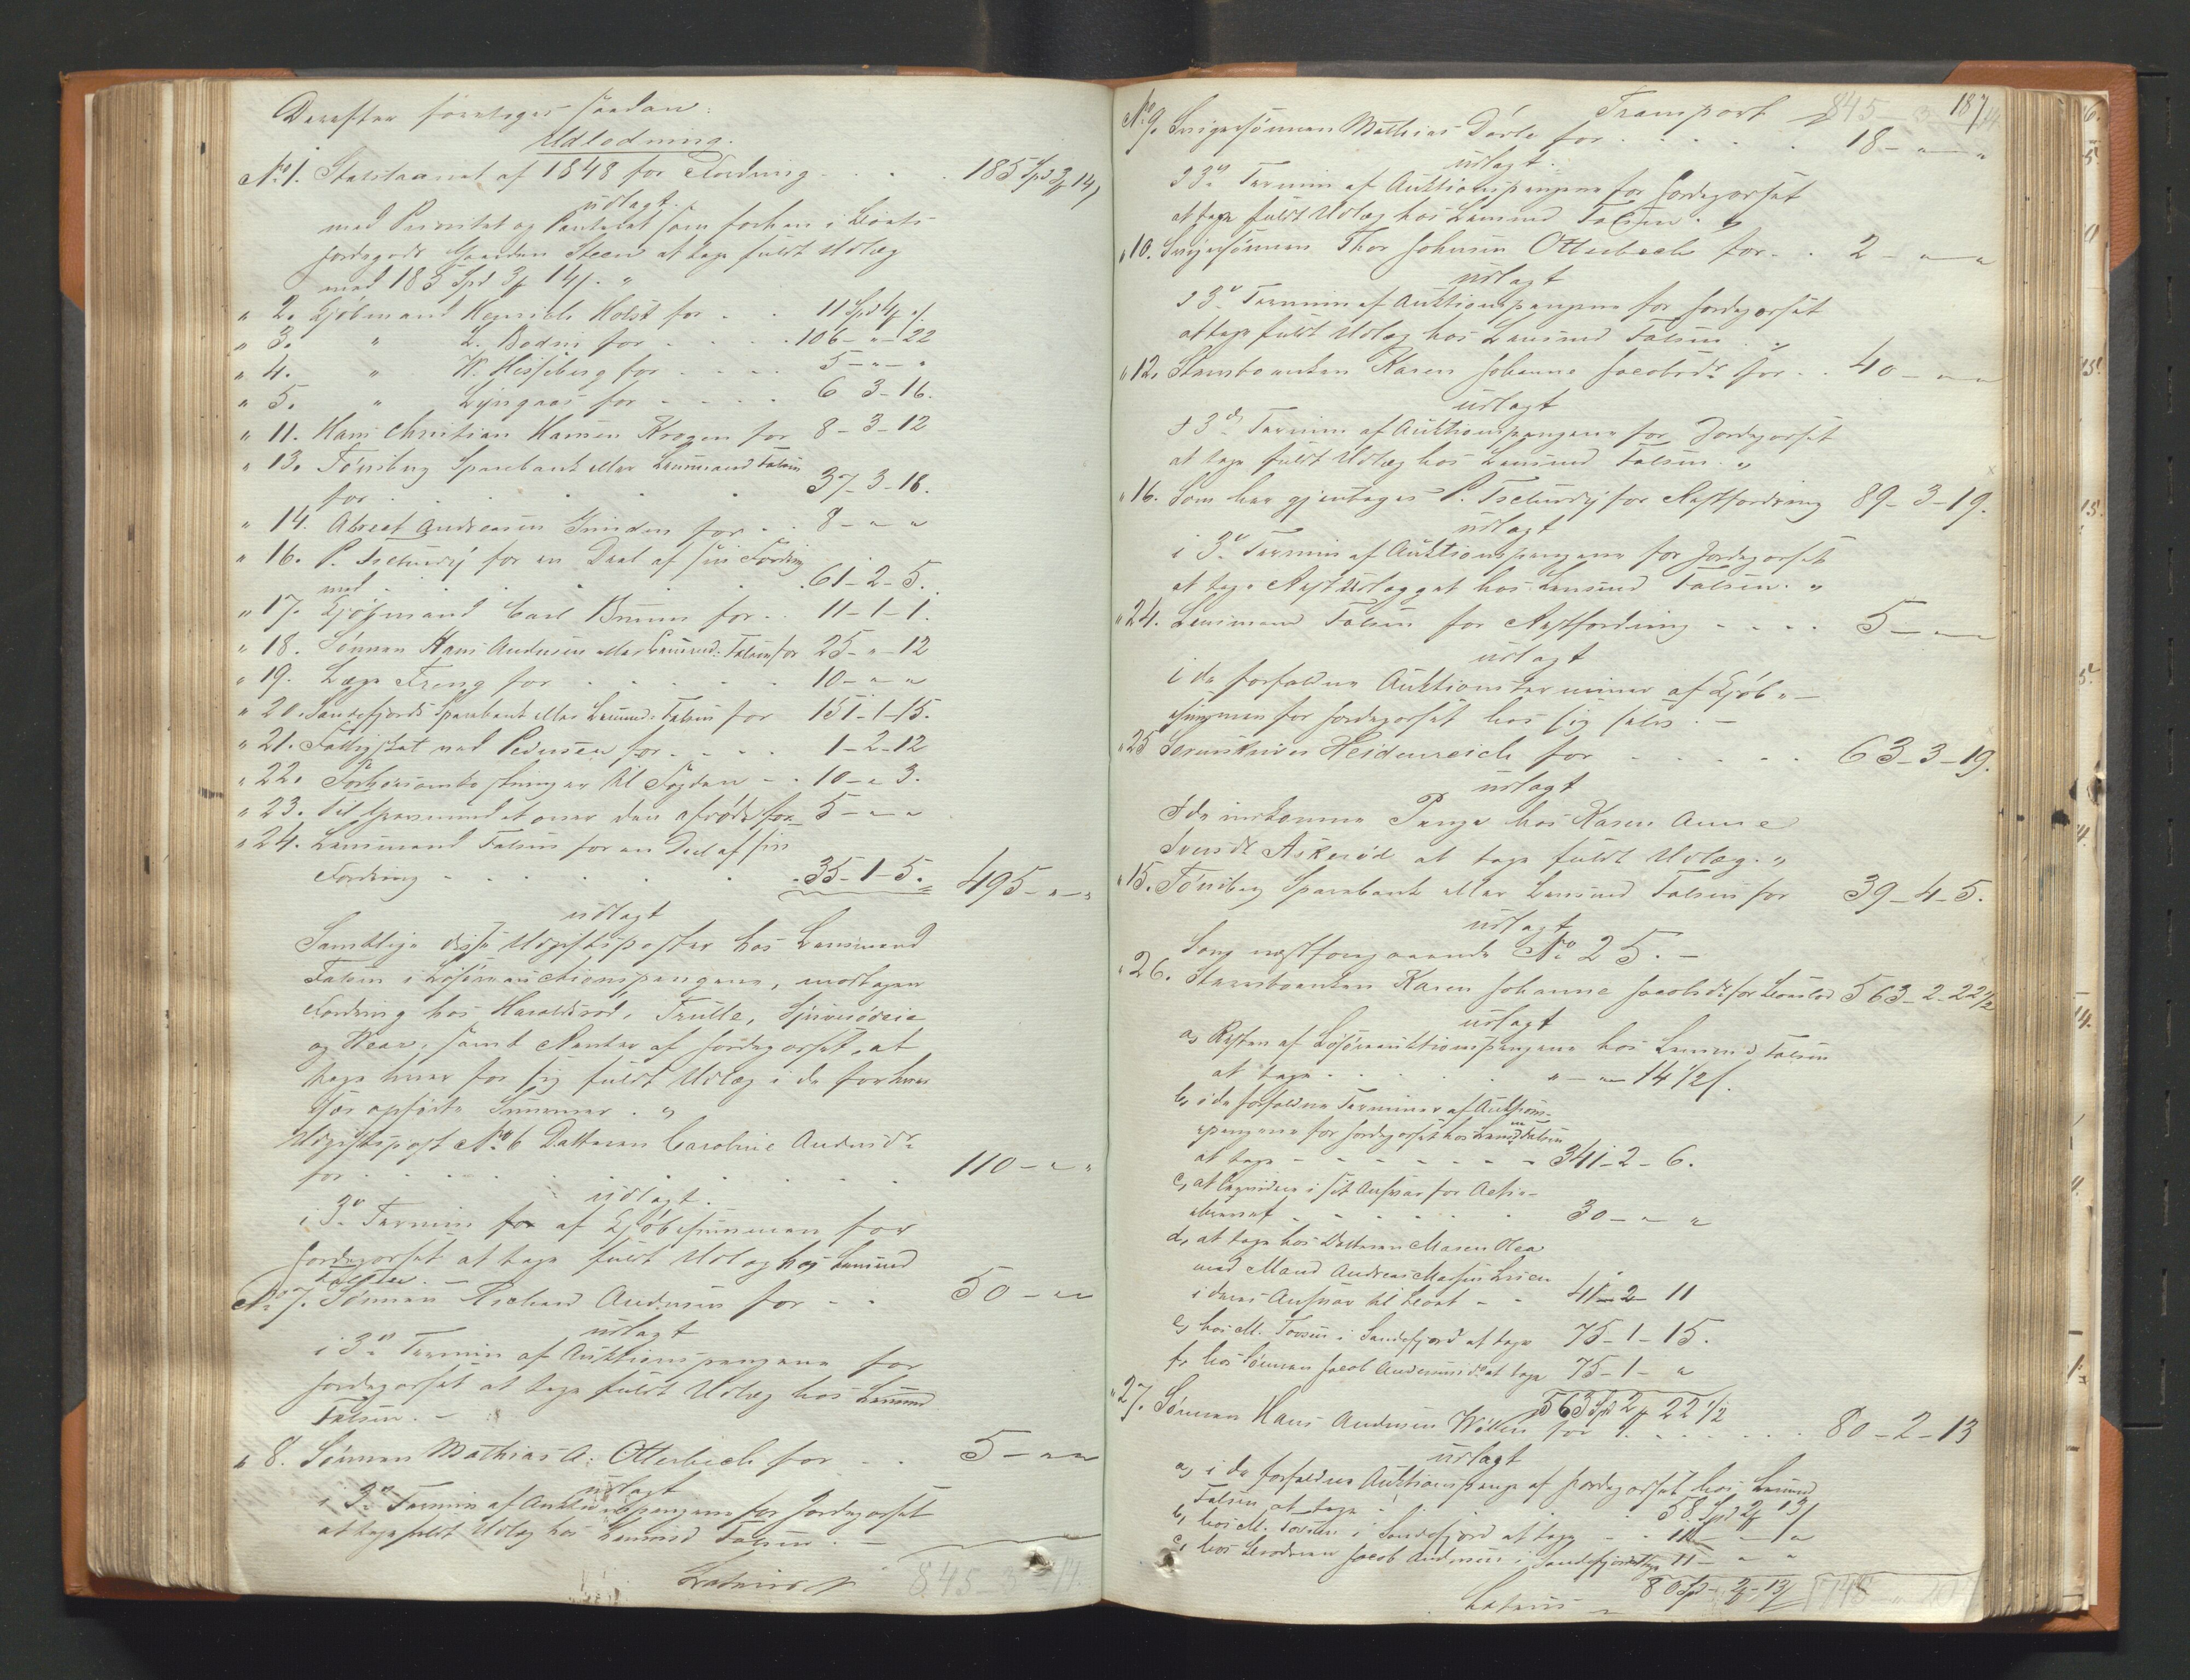 Derefter foretoges saadan:
Udlodning.
No 1. Statskassen af 1848 for Fordring . . . 185 Spd 3 14
udlagt
med Prioritet og Panteret som forhen i Boets
Jordegods Gaarden Steen at tage fuldt Udlæg
med 185 Spd 3 14 "
" 2. Kjøbmand Henrich Holst for . . 11 Spd 4 "
" 3. " L. Bodin for . . . . 106 - " - 22
" 4. " W. Hesseberg for . . . . 5 - " - "
" 5. " Lyngaas for . . . . 6 3 - 16.
" 11. Hans Christian Hansen Krogen for 8 - 3 - 12
" 13. Tønsberg Sparebank eller Lensmand Falsen
for . . . . . . 37 - 3 - 18.
" 14. Abreat Andreasen for . . 8 - " "
" 16. P. Tschudy for en Deel af sin Fordring
med . . . . . . 61 - 2 - 5.
" 17. Kjøbmand Carl Bruun for . . 11 - 1 - 1.
" 18. Sønnen Hans Andersen eller Lensmd: Falsen for 25 - " - 12
" 19. Læge Freng for . . . . . 10 - " "
" 20. Sandefjords Sparebank eller Lensmd: Falsen for 151 - 1 - 15.
" 21. Fattigskat ved Pedersen for . . . . 1 - 2 - 12
" 22. til Fogden . . 10 - " 3.
" 23. til Gravmindet over den afdøde for 5 - " "
" 24. Lensmand Falsen for en Deel af sin
Fordring . . . . . . 35 - 1 - 5. 495 - " - "
udlagt
Samtlige disse Udgiftsposter hos Lensmand
Falsen i Løsøreauctionspengene, modtagen
Fordring hos Haraldsrød, Trulle,
og samt Renter af Jordegodset, at
tage hver for sig fuldt Udlæg i de forhen
opførte Summer. "
Udgiftspost No 6 Datteren Caroline Andersdr
for . . . . . . . . . 110 - " "
udlagt.
i 3die Termin for af Kjøbesummen for
Jordegodset at tage fuldt Udlæg hos Lensmd
Falsen. -
No 7. Sønnen Richard Andersen for . . 50 - " "
udlagt
i 3die Termin af Auktionspengene for
Jordegodset at tage fuldt Udlæg hos Lensmd
Falsen. -
" 8. Sønnen Mathias A: Otterbech for . . 5 - " "
udlagt
i 3die Termin af Auktionspengene for Jordegodset
at tage fuldt Udlæg hos Lensmd Falsen. -
Lateris 845 - 3 - 14.
187
Transport 845 - 3 - 14
No 9. Svigersønnen Mathias Dørle for . . . . 18 - " - "
udlagt.
I 3die Termin af Auktionspengene for Jordegodset
at tage fuldt Udlæg hos Lensmd Falsen. "
" 10. Svigersønnen Thor Johnsen Otterbech for . . 2 - " - "
udlagt
I 3die Termin af Auktionspengene for Jordegodset
at tage fuldt Udlæg hos Lensmd Falsen. "
" 12. Stervboenken Karen Johanne Jacobsdr for . . 40 - " - "
udlagt
I 3die Termin af Auktionspengene for Jordegodset
at tage fuldt Udlæg hos Lensmd Falsen. "
" 16. Som her gjentages P. Tschudy for Restfordring 89 - 3 - 19.
udlagt
i 3die Termin af Auktionspengene for Jordegodset
at tage Restudlægget hos Lensmd Falsen. "
" 24. Lensmand Falsen for Restfordring . . . . 5 - " - "
udlagt
i de forfaldne Auktionsterminer af Kjøbe-
summen for Jordegodset hos sig selv. -
" 25 Sorenskriver Heidenreich for . . . . . 63 - 3 - 19.
udlagt
I de indkomne Penge hos Karen Anne
Svensdr Askerød at tage fuldt Udlæg. "
" 15. Tønsberg Sparebank eller Lensmd Falsen for 39 - 4 - 5.
udlagt
Som næstforegaaende No 25. -
" 26. Stervboenken Karen Johanne Jacobsdr for Boeslod 563 - 2 - 22½
udlagt
a, Resten af Løsøreauktionspengene hos Lensmd Falsen
at tage . . . . . " - " 14½
b, i de forfaldne Terminer af Auktions-
pengene for Jordegodset hos Lensmd Falsen
at tage - - - - - - - 341 - 2 - 6.
c, at i sit Ansvar for Actie-
brevet . . . . . . 30 - " "
d, at tage hos Datteren Maren Olea
med Mand Andreas
i deres Ansvar til Boet - - 41 - 2 - 11
e, hos M. Torsen i Sandefjord at tage 75 - 1 - 15.
f, hos Sønnen Jacob Andersen ds at tage 75 - 1 - "
563 Spd 2 22½
" 27. Sønnen Hans Andersen for . . . . . 80 - 2 - 13
udlagt
a, i de forfaldne Auktionspenge af Jordegodset hos Lensmd
Falsen at tage . . . . . 58 Spd 2 13
b, hos M. Torsen i Sandefjord at tage . . 11 - " "
c, hos Broderen Jacob Andersen i Sandefjord at tage 11 - " "
80 Spd - 2 - 13
Lateris